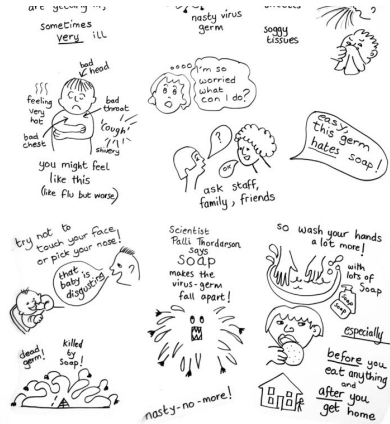 are getting
sometimes
very ill
bad
head
feeling
very
hot
bad
throat
'cough'
bad
chest
shivery
you might feel
like this
(like flu but worse)
nasty virus
germ
i'm so
worried
what
can I do?
?
OK
ask staff,
family, friends
soggy
tissues
easy,
this germ
hates soap!
try not to
touch your face
or pick your nose!
that
baby is
disgusting
dead
germ!
killed
by
soap!
Scientist
Palli Thordarson
says
SOAP
makes the
virus-germ
fall apart!
nasty-no-more!
so wash your hands
a lot more!
with
lots of
Soap
Soap
Soap
especially
before you
eat anything
and
after you
get home